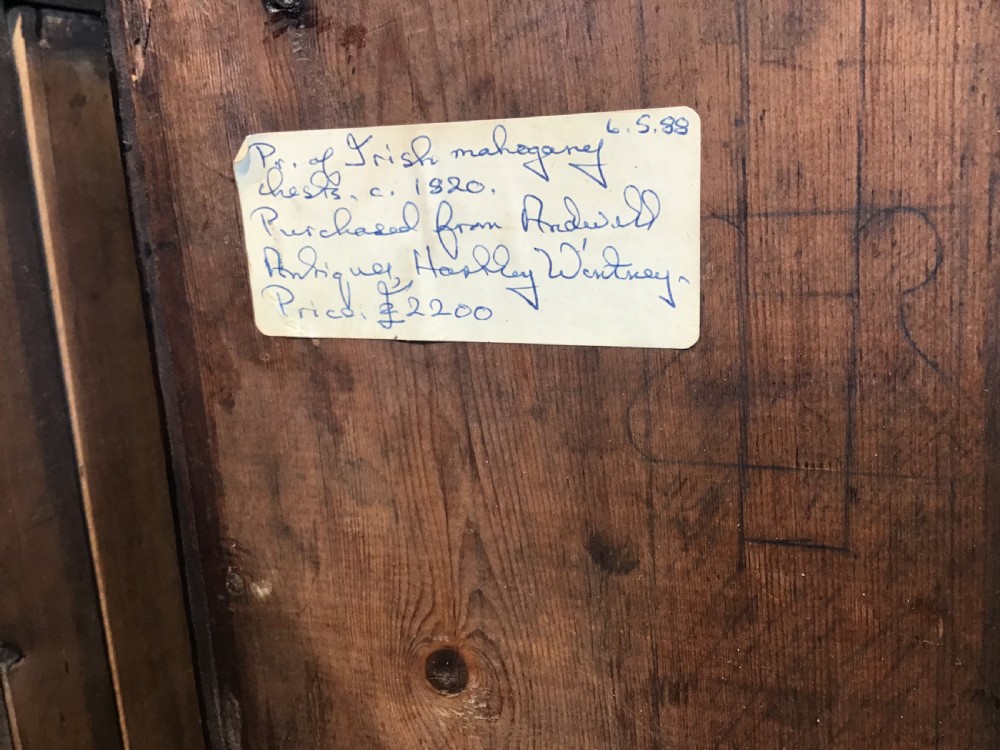 6.5.88
Pr. of Irish mahogany
chests, c. 1820.
Purchased from Andwell
Antiques, Hartley Wintney.
Price: £2200